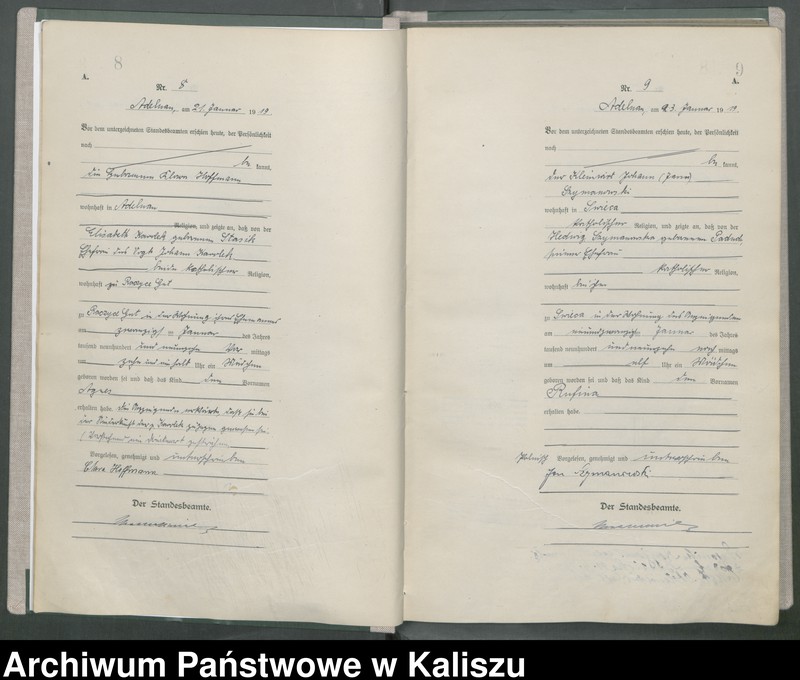 8
A.
Nr. 8
Adelnau, am 21. Januar 1919
Vor dem unterzeichneten Standesbeamten erschien heute, der Persönlichkeit
nach
be kannt,
die Hebamme Klara Hoffmann
wohnhaft in Adelnau
Religion, und zeigte an, daß von der
Elisabeth Karolek geborenen Stasik
Ehefrau des Vogt Johann Karolek
beide katholischer Religion,
wohnhaft zu Gut
zu Gut in der Wohnung ihres Ehemannes
am zwanzigst en Januar des Jahres
tausend neunhundert und neunzehn Vor mittags
um zehn und einhalb Uhr ein Mädchen
geboren worden sei und daß das Kind den Vornamen
Agnes
erhalten habe. Die Anzeigende erklärte, daß sie bei
der Niederkunft der Karolek zugegen gewesen sei
Vorgelesen, genehmigt und unterschrieben
Clara Hoffmann
Der Standesbeamte.
9
A.
Nr. 9
Adelnau am 23. Januar 1919
Vor dem unterzeichneten Standesbeamten erschien heute, der Persönlichkeit
nach
be kannt,
der Kleinwirt Johann (Jan)
Szymanowski
wohnhaft in Swieca
katholischer Religion, und zeigte an, daß von der
Hedwig Szymanowska geborenen
seiner Ehefrau
katholischer Religion,
wohnhaft bei ihm
zu Swieca in der Wohnung des Anzeigenden
am Januar des Jahres
tausend neunhundert und neunzehn nach mittags
um elf Uhr ein Mädchen
geboren worden sei und daß das Kind den Vornamen
Rufina
erhalten habe.
Polnisch Vorgelesen, genehmigt und unterschrieben
Jan Szymanowski
Der Standesbeamte.
Archiwum Państwowe w Kaliszu